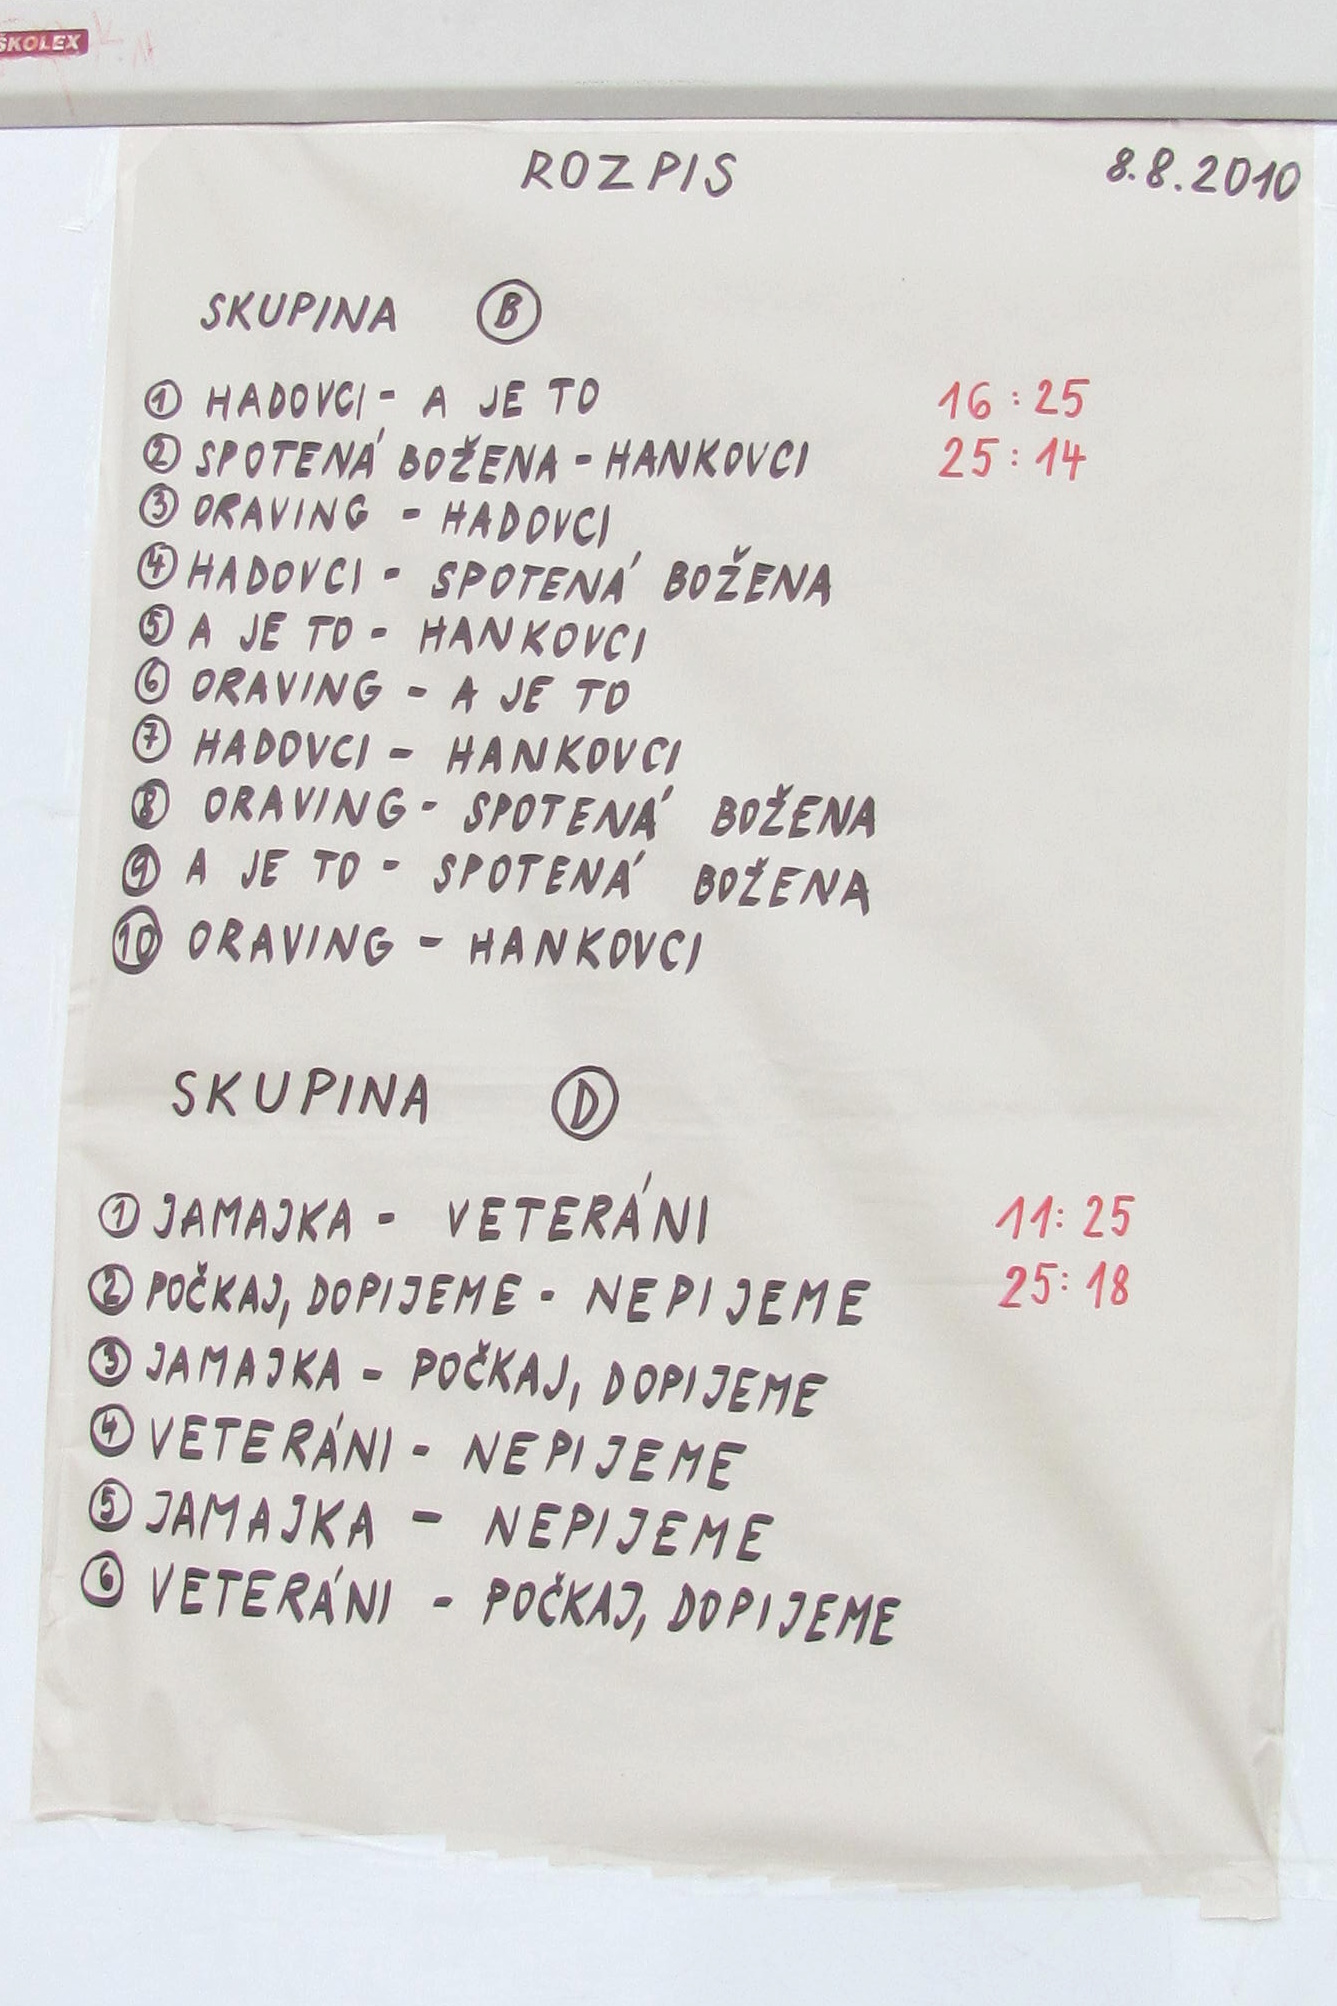 ŠKOLEX
ROZPIS 8.8.2010
SKUPINA B
1 HADOVCI - A JE TO 16:25
2 SPOTENÁ BOŽENA - HANKOVCI 25:14
3 ORAVING - HADOVCI
4 HADOVCI - SPOTENÁ BOŽENA
5 A JE TO - HANKOVCI
6 ORAVING - A JE TO
7 HADOVCI - HANKOVCI
8 ORAVING - SPOTENÁ BOŽENA
9 A JE TO - SPOTENÁ BOŽENA
10 ORAVING - HANKOVCI
SKUPINA D
1 JAMAJKA - VETERÁNI 11:25
2 POČKAJ, DOPIJEME - NEPIJEME 25:18
3 JAMAJKA - POČKAJ, DOPIJEME
4 VETERÁNI - NEPIJEME
5 JAMAJKA - NEPIJEME
6 VETERÁNI - POČKAJ, DOPIJEME